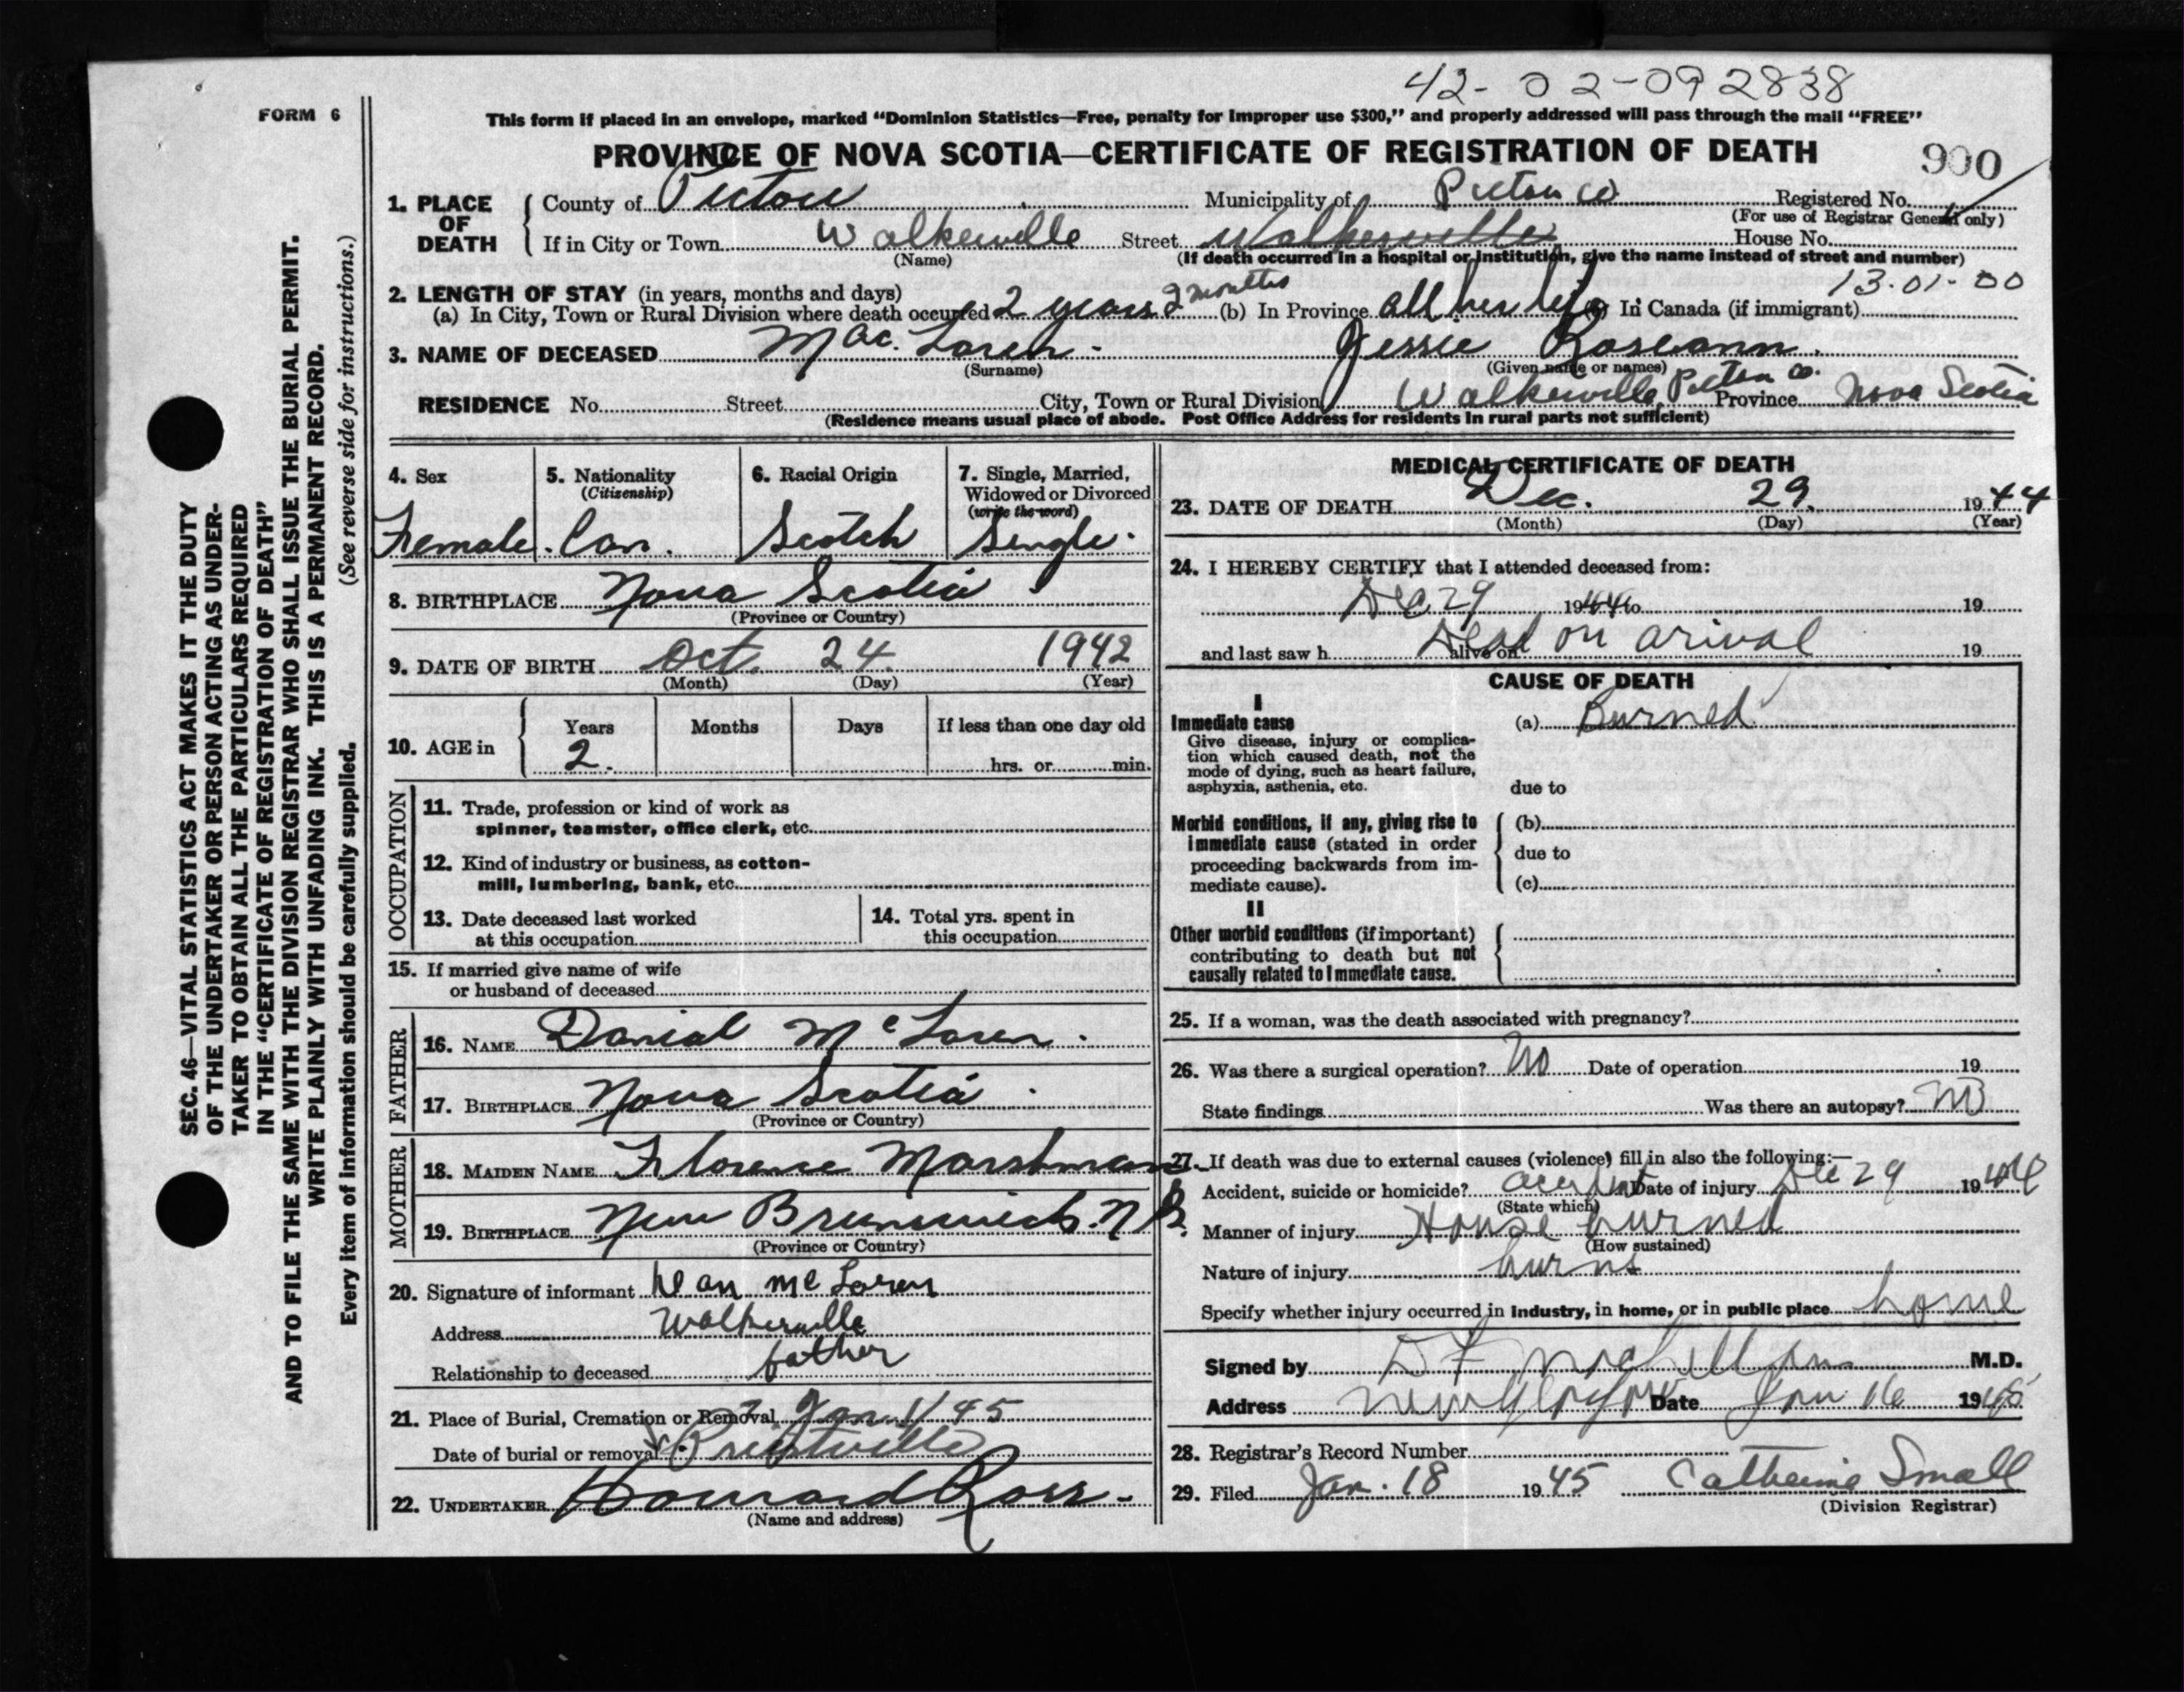 42-02-092838
FORM 6
This form if placed in an envelope, marked "Dominion Statistics—Free, penalty for improper use $300," and properly addressed will pass through the mail "FREE"
PROVINCE OF NOVA SCOTIA—CERTIFICATE OF REGISTRATION OF DEATH
900
1. PLACE OF DEATH { County of Pictou Municipality of Pictou Co Registered No.
(For use of Registrar General only)
If in City or Town Walkerville Street Walkerville House No.
(Name) (If death occurred in a hospital or institution, give the name instead of street and number)
13-01-00
2. LENGTH OF STAY (in years, months and days)
(a) In City, Town or Rural Division where death occurred 2 years 2 months (b) In Province all her life (c) In Canada (if immigrant)
3. NAME OF DECEASED Mac Laren - Jessie Roseann.
(Surname) (Given name or names)
RESIDENCE No. Street City, Town or Rural Division Walkerville Pictou Co. Province Nova Scotia
(Residence means usual place of abode. Post Office Address for residents in rural parts not sufficient)
4. Sex
Female.
5. Nationality
(Citizenship)
Can.
6. Racial Origin
Scotch
7. Single, Married,
Widowed or Divorced
(write the word)
Single.
8. BIRTHPLACE Nova Scotia
(Province or Country)
9. DATE OF BIRTH Oct. 24 1942
(Month) (Day) (Year)
10. AGE in { Years Months Days If less than one day old
2. hrs. or min.
OCCUPATION
11. Trade, profession or kind of work as
spinner, teamster, office clerk, etc.
12. Kind of industry or business, as cotton-
mill, lumbering, bank, etc.
13. Date deceased last worked
at this occupation
14. Total yrs. spent in
this occupation
15. If married give name of wife
or husband of deceased
FATHER
16. NAME Danial McLaren.
17. BIRTHPLACE Nova Scotia.
(Province or Country)
MOTHER
18. MAIDEN NAME Florence Marshman
19. BIRTHPLACE New Brunswick. N B.
(Province or Country)
20. Signature of informant Dan McLaren
Address Walkerville
Relationship to deceased father
21. Place of Burial, Cremation or Removal Jan 1/45
Date of burial or removal Priestville
22. UNDERTAKER Howard Ross.
(Name and address)
MEDICAL CERTIFICATE OF DEATH
23. DATE OF DEATH Dec. 29. 1944
(Month) (Day) (Year)
24. I HEREBY CERTIFY that I attended deceased from:
Dec 29 1944 to 19
and last saw h alive on Dead on arival 19
CAUSE OF DEATH
I
Immediate cause
Give disease, injury or complica-
tion which caused death, not the
mode of dying, such as heart failure,
asphyxia, asthenia, etc.
(a) Burned
due to
Morbid conditions, if any, giving rise to
immediate cause (stated in order
proceeding backwards from im-
mediate cause).
(b)
due to
(c)
II
Other morbid conditions (if important)
contributing to death but not
causally related to immediate cause.
25. If a woman, was the death associated with pregnancy?
26. Was there a surgical operation? No Date of operation 19
State findings Was there an autopsy? No
27. If death was due to external causes (violence) fill in also the following:—
Accident, suicide or homicide? accident Date of injury Dec 29 1944
(State which)
Manner of injury House burned
(How sustained)
Nature of injury burns
Specify whether injury occurred in industry, in home, or in public place home
Signed by D F M.D.
Address New Glasgow Date Jan 16 1945
28. Registrar's Record Number
29. Filed Jan. 18 1945 Catherine Small
(Division Registrar)
SEC. 46—VITAL STATISTICS ACT MAKES IT THE DUTY
OF THE UNDERTAKER OR PERSON ACTING AS UNDER-
TAKER TO OBTAIN ALL THE PARTICULARS REQUIRED
IN THE "CERTIFICATE OF REGISTRATION OF DEATH"
AND TO FILE THE SAME WITH THE DIVISION REGISTRAR WHO SHALL ISSUE THE BURIAL PERMIT.
WRITE PLAINLY WITH UNFADING INK. THIS IS A PERMANENT RECORD.
Every item of information should be carefully supplied. (See reverse side for instructions.)